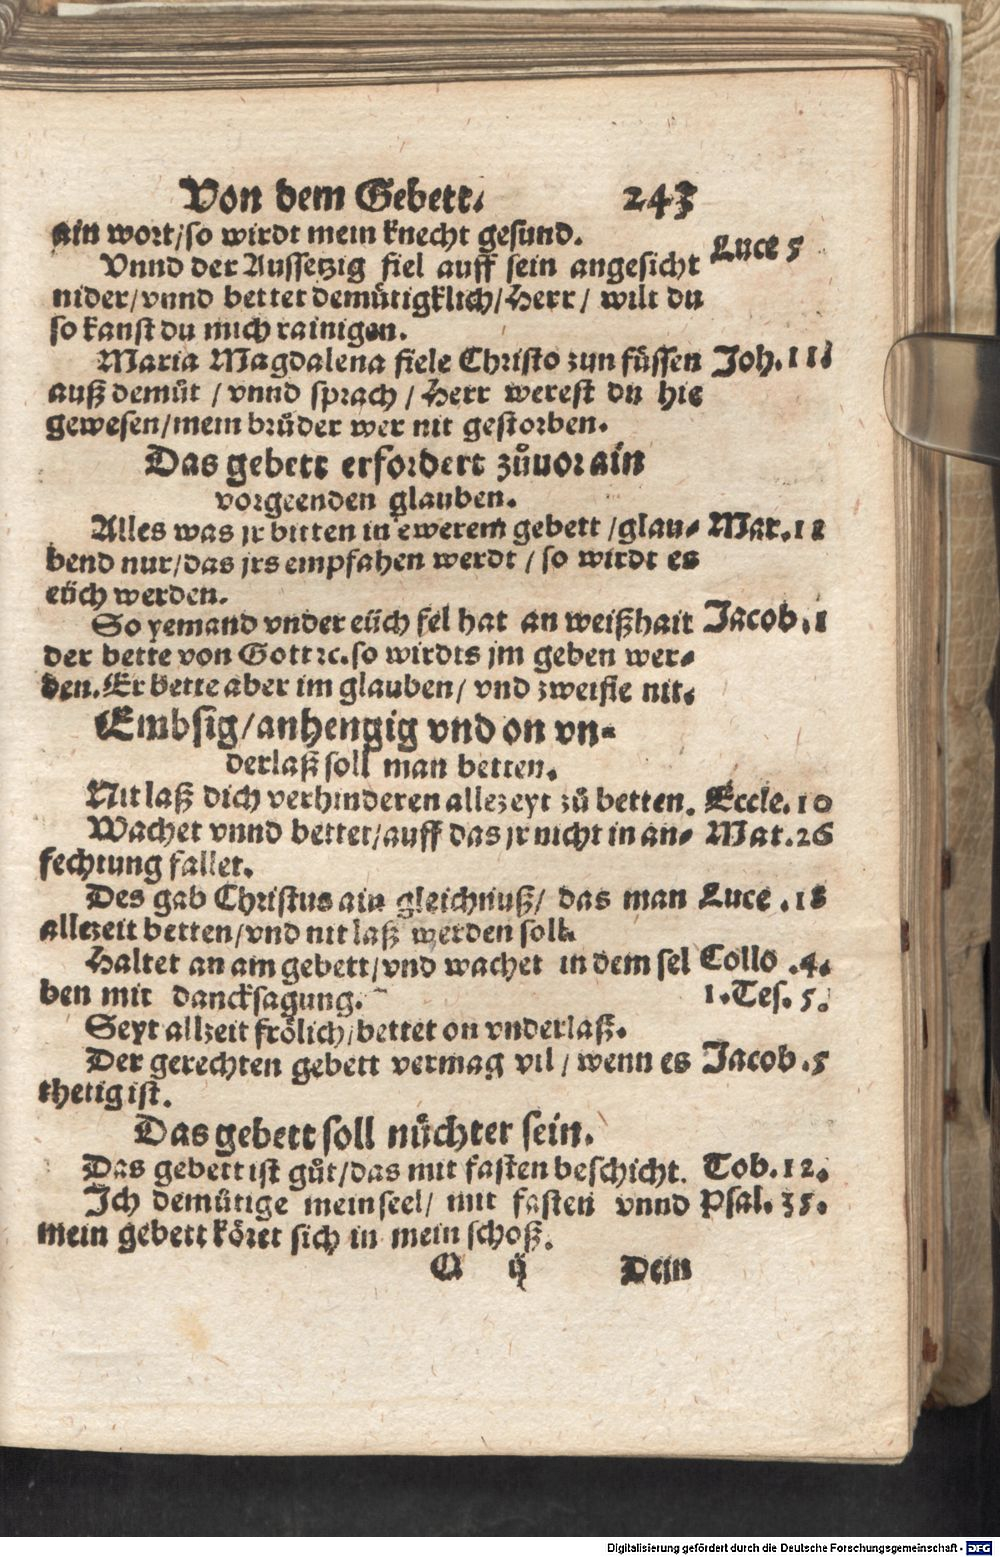 Von dem Gebett. 243
ain wort/so wirdt mein knecht gesund.
Vnnd der Aussetzig fiel auff sein angesicht Luce 5
nider/vnnd bettet demuͤtigklich/Herr/ wilt du
so kanst du mich rainigen.
Maria Magdalena fiele Christo zun fuͤssen Joh. 11.
auß demuͤt / vnnd sprach / Herr werest du hie
gewesen/mein bruͦder wer nit gestorben.
Das gebett erfordert zuͦuor ain
vorgeenden glauben.
Alles was jr bitten in ewerem gebett /glau- Mar. 11
bend nur/das jrs empfahen werdt / so wirdt es
eüch werden.
So yemand vnder eüch fel hat an weißhait Jacob. 1
der bette von Gott ꝛc. so wirdts jm geben wer-
den. Er bette aber im glauben/ vnd zweifle nit.
Embsig/anhengig vnd on vn-
derlaß soll man betten.
Nit laß dich verhinderen allezeyt zuͦ betten. Eccle. 10
Wachet vnnd bettet/auff das jr nicht in an- Mat. 26
fechtung fallet.
Des gab Christus ain gleichnuß/ das man Luce .18
allezeit betten/vnd nit laß werden soll.
Haltet an am gebett/vnd wachet in dem sel Collo .4.
ben mit dancksagung. 1. Tes. 5.
Seyt allzeit froͤlich/bettet on vnderlaß.
Der gerechten gebett vermag vil / wenn es Jacob .5
thetig ist.
Das gebett soll nuͤchter sein.
Das gebett ist guͦt/das mit fasten beschicht. Tob. 12.
Ich demuͤtige mein seel/ mit fasten vnnd Psal. 35.
mein gebett koͤret sich in mein schoß.
Q ij Dein
Digitalisierung gefördert durch die Deutsche Forschungsgemeinschaft - DFG